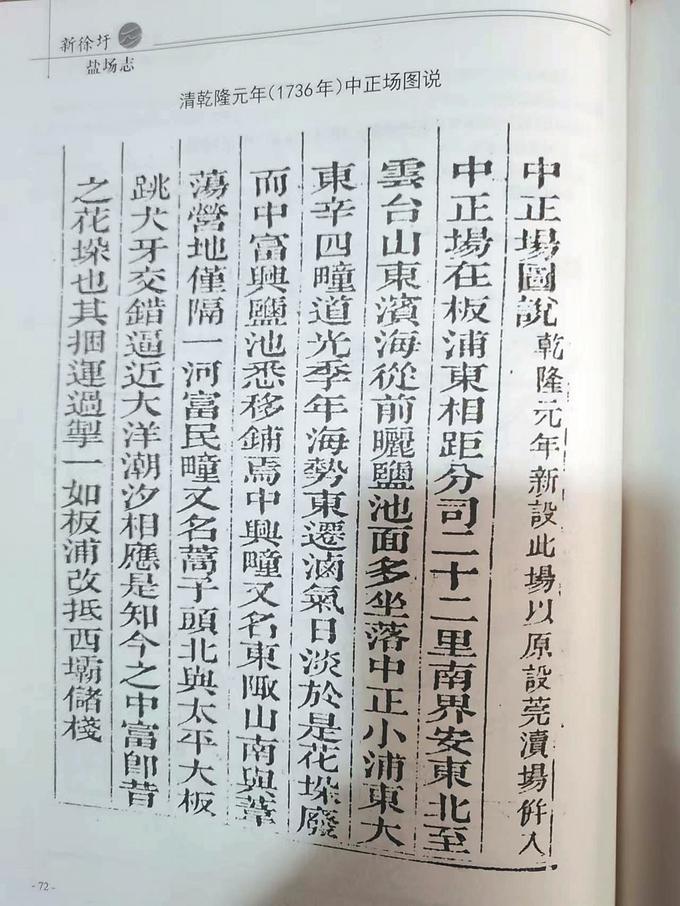 新徐圩
盐场志
清乾隆元年(1736年)中正场图说
中正場圖說 乾隆元年新設此場以原設莞瀆場併入
中正場在板浦東相距分司二十二里南界安東北至
雲台山東濱海從前曬鹽池面多坐落中正小浦東大
東辛四疃道光季年海勢東遷滷氣日淡於是花垛廢
而中富興鹽池悉移鋪焉中興疃又名東陬山南與葦
蕩營地僅隔一河富民疃又名蒿子頭北與太平大板
跳犬牙交錯逼近大洋潮汐相應是知今之中富卽昔
之花垛也其捆運過掣一如板浦改抵西壩儲棧
- 72 -